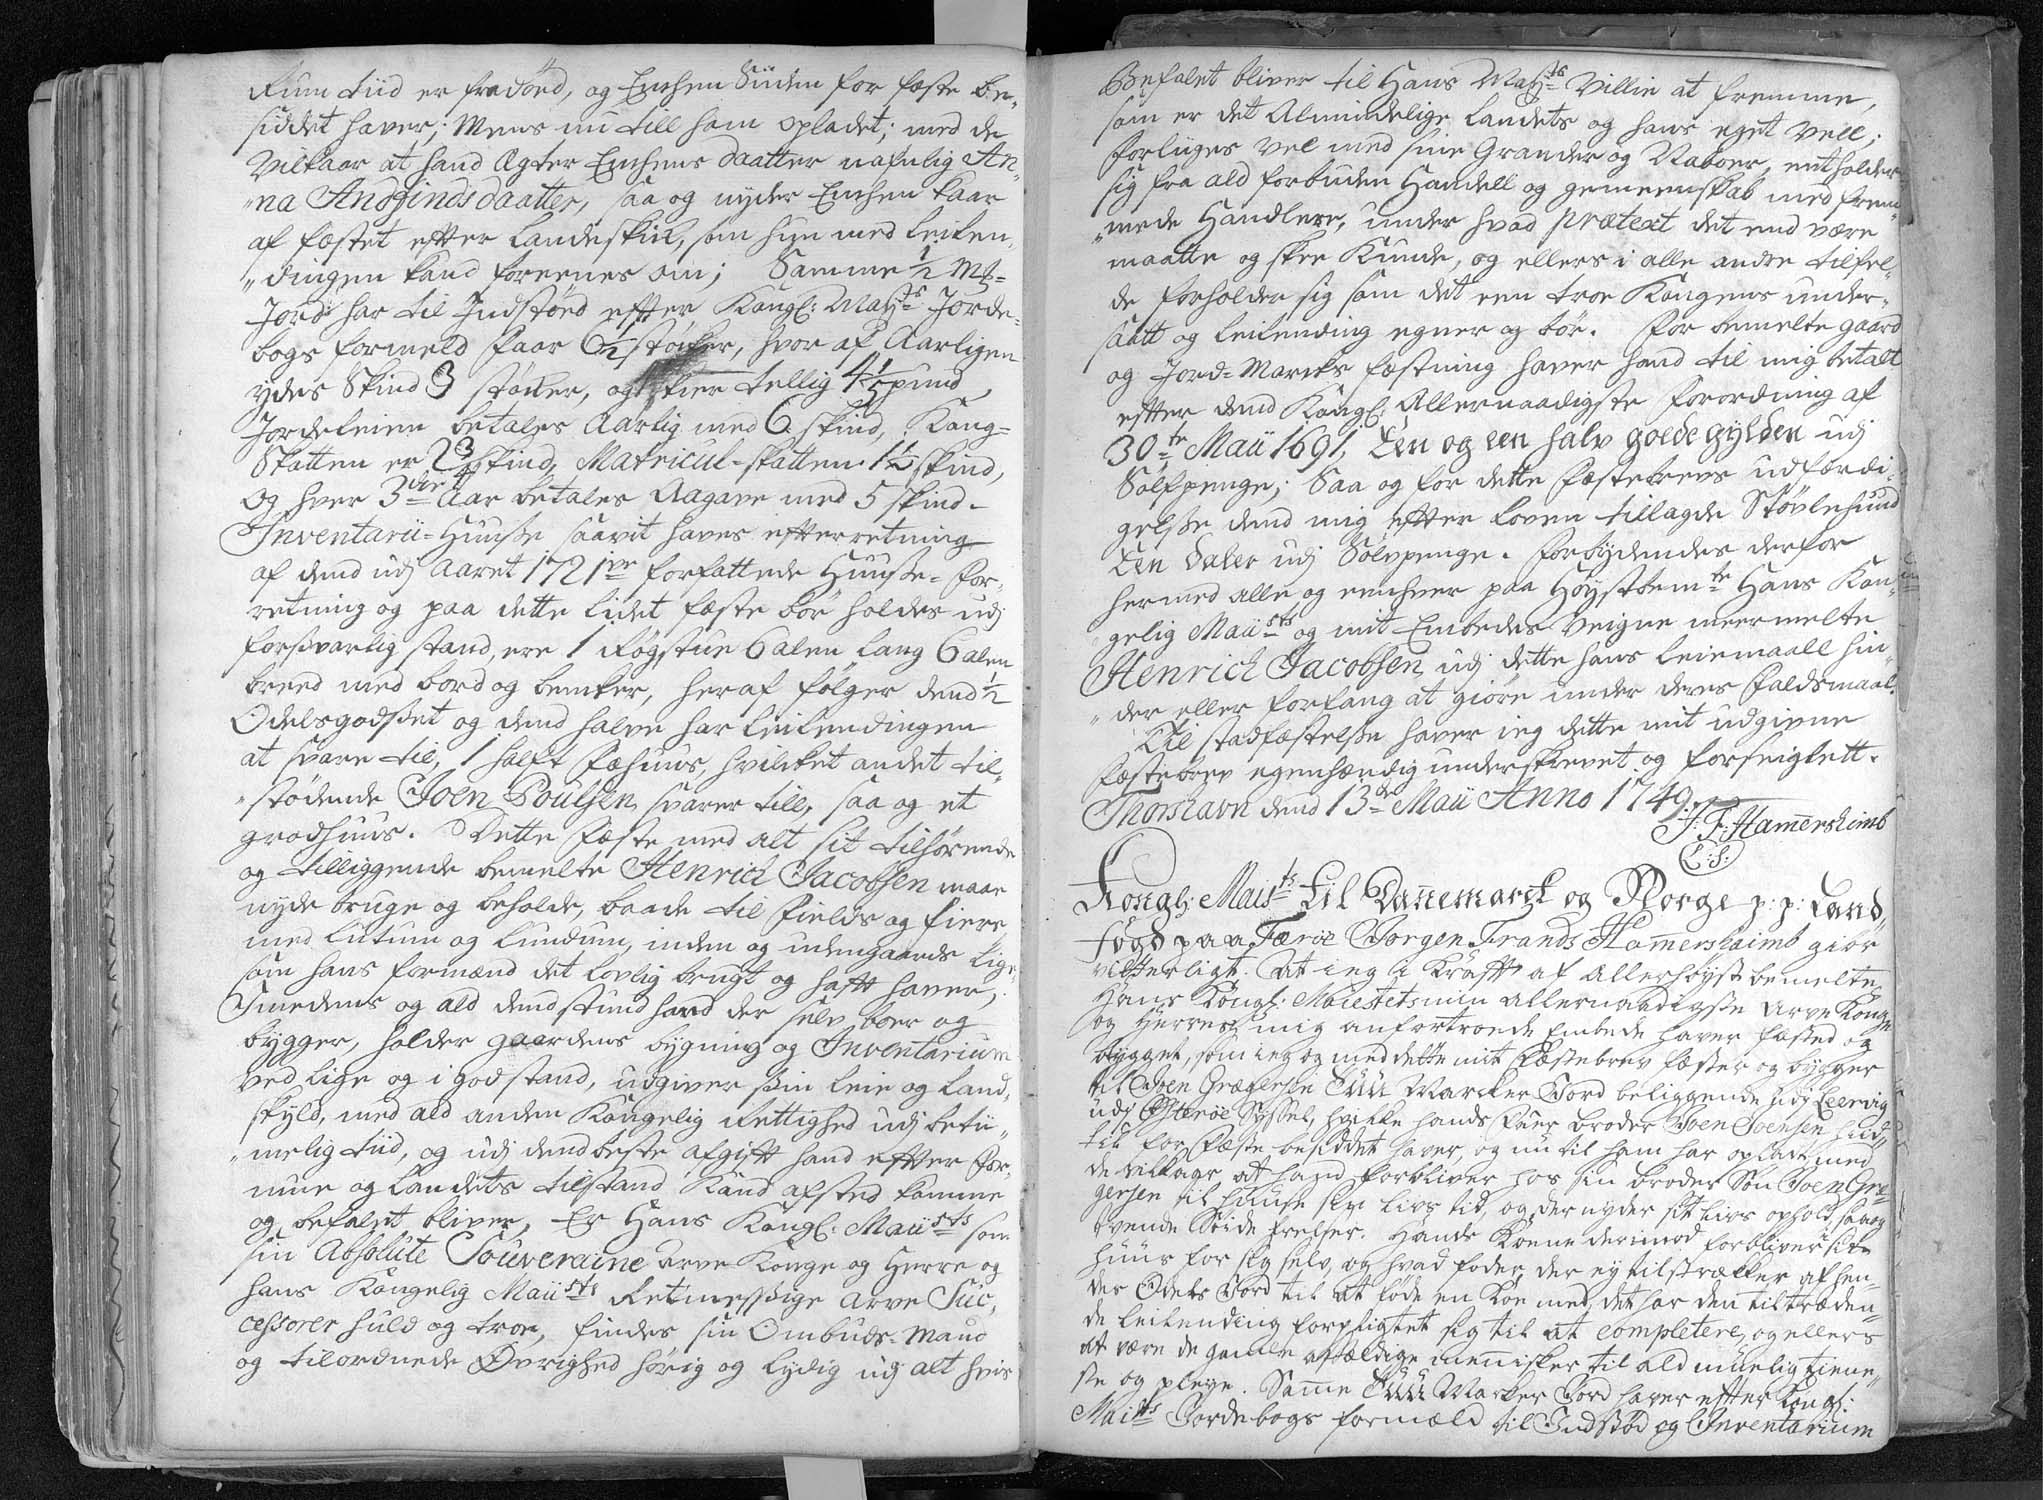 Rum tiid er fradöed, og Enchen Siiden for fæste be-
siddet haver; Mens nu till ham opladet; med de
Vilkaar at hand Ægter Enchens daatter nafnlig An-
"na Andfindsdaatter, saa og nyder Enchen kaar
af fæstet efter Landskik, som hun med Leilen-
"dingen kand foreenes om; Samme ½ Mk=
Jord har til Indstöed efter Kongl: Mayts Jorde-
bogs formeld Faar 6½ stöcker, hvor af Aarligen
ydes Skind 3 stöcker, og kier tellig 4½ pund,
Jordeleien betales Aarlig med 6 skind, Kong-
Skatten er 2¾ skind, Matricul-skatten 1½ skind,
og hver 3die Aar betales Aagave med 5 skind.
Inventarii-Huusse saavit haves efterretning
af dend udj Aaret 1721ve forfattede Huusse-for-
retning og paa dette lidet fæste bör holdes udj
forsvarlig stand, ere 1 Rögstue 6 alen lang 6 alen
breed med bord og bencker, heraf fölger dend ½
Odelsgodset og dend halve har Leilendingen
at svare til, 1 halft Fæhuus, hvilcket andet til-
"stödende Joen Poulsen svarer till, saa og et
grodhuus. Dette Fæste med alt sit tilhörende
og tilliggende bemelte Henrich Jacobsen maae
nyde bruge og beholde, baade til Fields og Fiere
med lutum og lundum, inden og udengaards lige-
som hans formænd det lovlig brugt og hafft haver,
Imedens og ald dend stund hand der selv boer og
bygger, holder gaardens bygning og Inventarium
ved lige og i god stand, udgiver sin leie og land-
skyld, med ald anden Kongelig Rettighed udj betii-
"melig tiid, og udj dend beste afgift hand efter for-
mue og Landets tilstand kand afsted komme
og befalet bliver, Er Hans Kongl: Maiists som
sin Absolute Souveraine arve Konge og Herre og
hans Kongelig Maiists Retmessige Arve Suc-
cessorer huld og troe, findes sin Ombuds-Mand
og tilordnede Øvrighed hörig og lydig udj alt hvis
Befalet bliver til Hans Mayts Villie at fremme,
som er det Almindelige Landets og hans eget Vell;
forliiges vel med sine Grander og Naboer, entholder
sig fra ald forbuden Handell og gemeenskab med frem-
"mede Handlere, under hvad prætext det end være
maatte og skee Kunde, og ellers i alle andre tilfel-
de forholder sig som det een troe Kongens under-
saatt og leilending egner og bör. For bemelte gaard
og Jord-Marcks fæstning haver hand til mig betalt
efter dend Kongl: Allernaadigste forordning af
30te Maii 1691, Een og een halv goldegylden udj
Sölfpenge; Saa og for dette Fæstebrevs udfærdi-
gelse dend mig efter Loven tillagde Stövlehuud
Een Daler udj Sölvpenge. Forbydendes derfor
hermed alle og eenhver paa Höystbemte Hans Kon-
"gelig Maiists og mit Embedes Veigne meermelte
Henrich Jacobsen udj dette hans Leiemaall hin-
"der eller forfang at giöre under deres Faldsmaal.
Til stadfæstelse haver ieg dette mit udgivne
Fæstebrev egenhændig underskrevet og forseiglett.
Thorshavn dend 13de Maii Anno 1749.
J: F: Hamershaimb
(L: S:)
Kongl: Maists til Dannemarck og Norge p: p: Land-
fogd paa Færöe Jörgen Frands Hamershaimb giör
vitterligt. At ieg i Krafft af allerhöyst bemelte
Hans Kongl: Maiestets min allernaadigste Arve Konge
og Herres mig anfortroede Embede haver fæsted og
bygget, som ieg og med dette mit Fæstebrev fæster og bygger
til Joen Gregersen Tuu Marcker Jord beliggende udj Leervig
udj Österöe Syssel, hvilke hands Faer broder Joen Joensen hid-
til for Fæste besiddet haver, og nu til ham har opladt med
de vilkaar at hand forbliver hos sin broder Sön Joen Gre-
gersen til huuse sin livs tid, og der nyder sit livs ophold, saa og
övende Söide frelser. Hands Koene derimod forbliver sit
huus for sig selv, og hvad foder der ey tilstrecker af hen-
des Odels Jord til at föde en Koe med, det har den tiltræden-
de leilending forpligtet sig til at completere, og ellers
at være de gamle afældige mennisker til ald muelig tiene-
ste og pleye. Same Tuu Marcker Jord haver efter Kongl:
Maists Jordebogs formæld til Indstöd og Inventarium